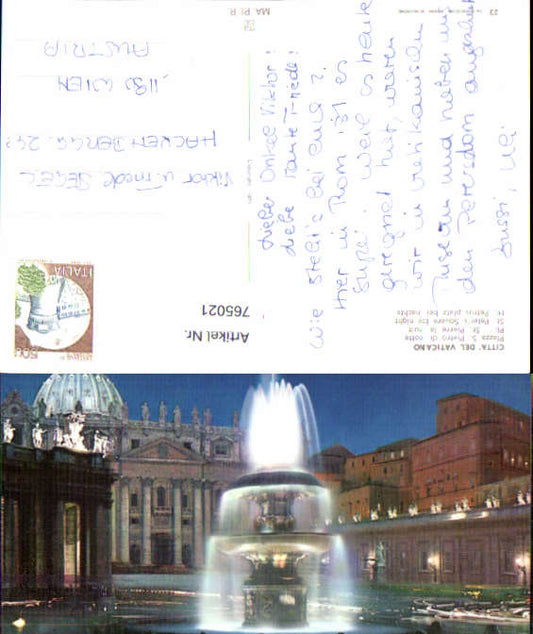 Lieber Onkel Viktor!
Liebe Tante Friedel!
Wie steht's bei euch?
Hier in Rom ist es
super. Weil es heute
geregnet hat, waren
wir im vatikanischen
Museum und haben uns
den Petersdom angeschaut
Bussi, Uli
Viktor u. Friedl SEGEL
HACKENBERGG. 29
1190 WIEN
AUSTRIA
ITALIA
500
Artikel Nr.
765021
CITTÀ DEL VATICANO
Piazza S. Pietro di notte
Pl. St. Pierre la nuit
St. Peter's Square by night
St. Petrus platz bei nachts
MA.PI.R.
23